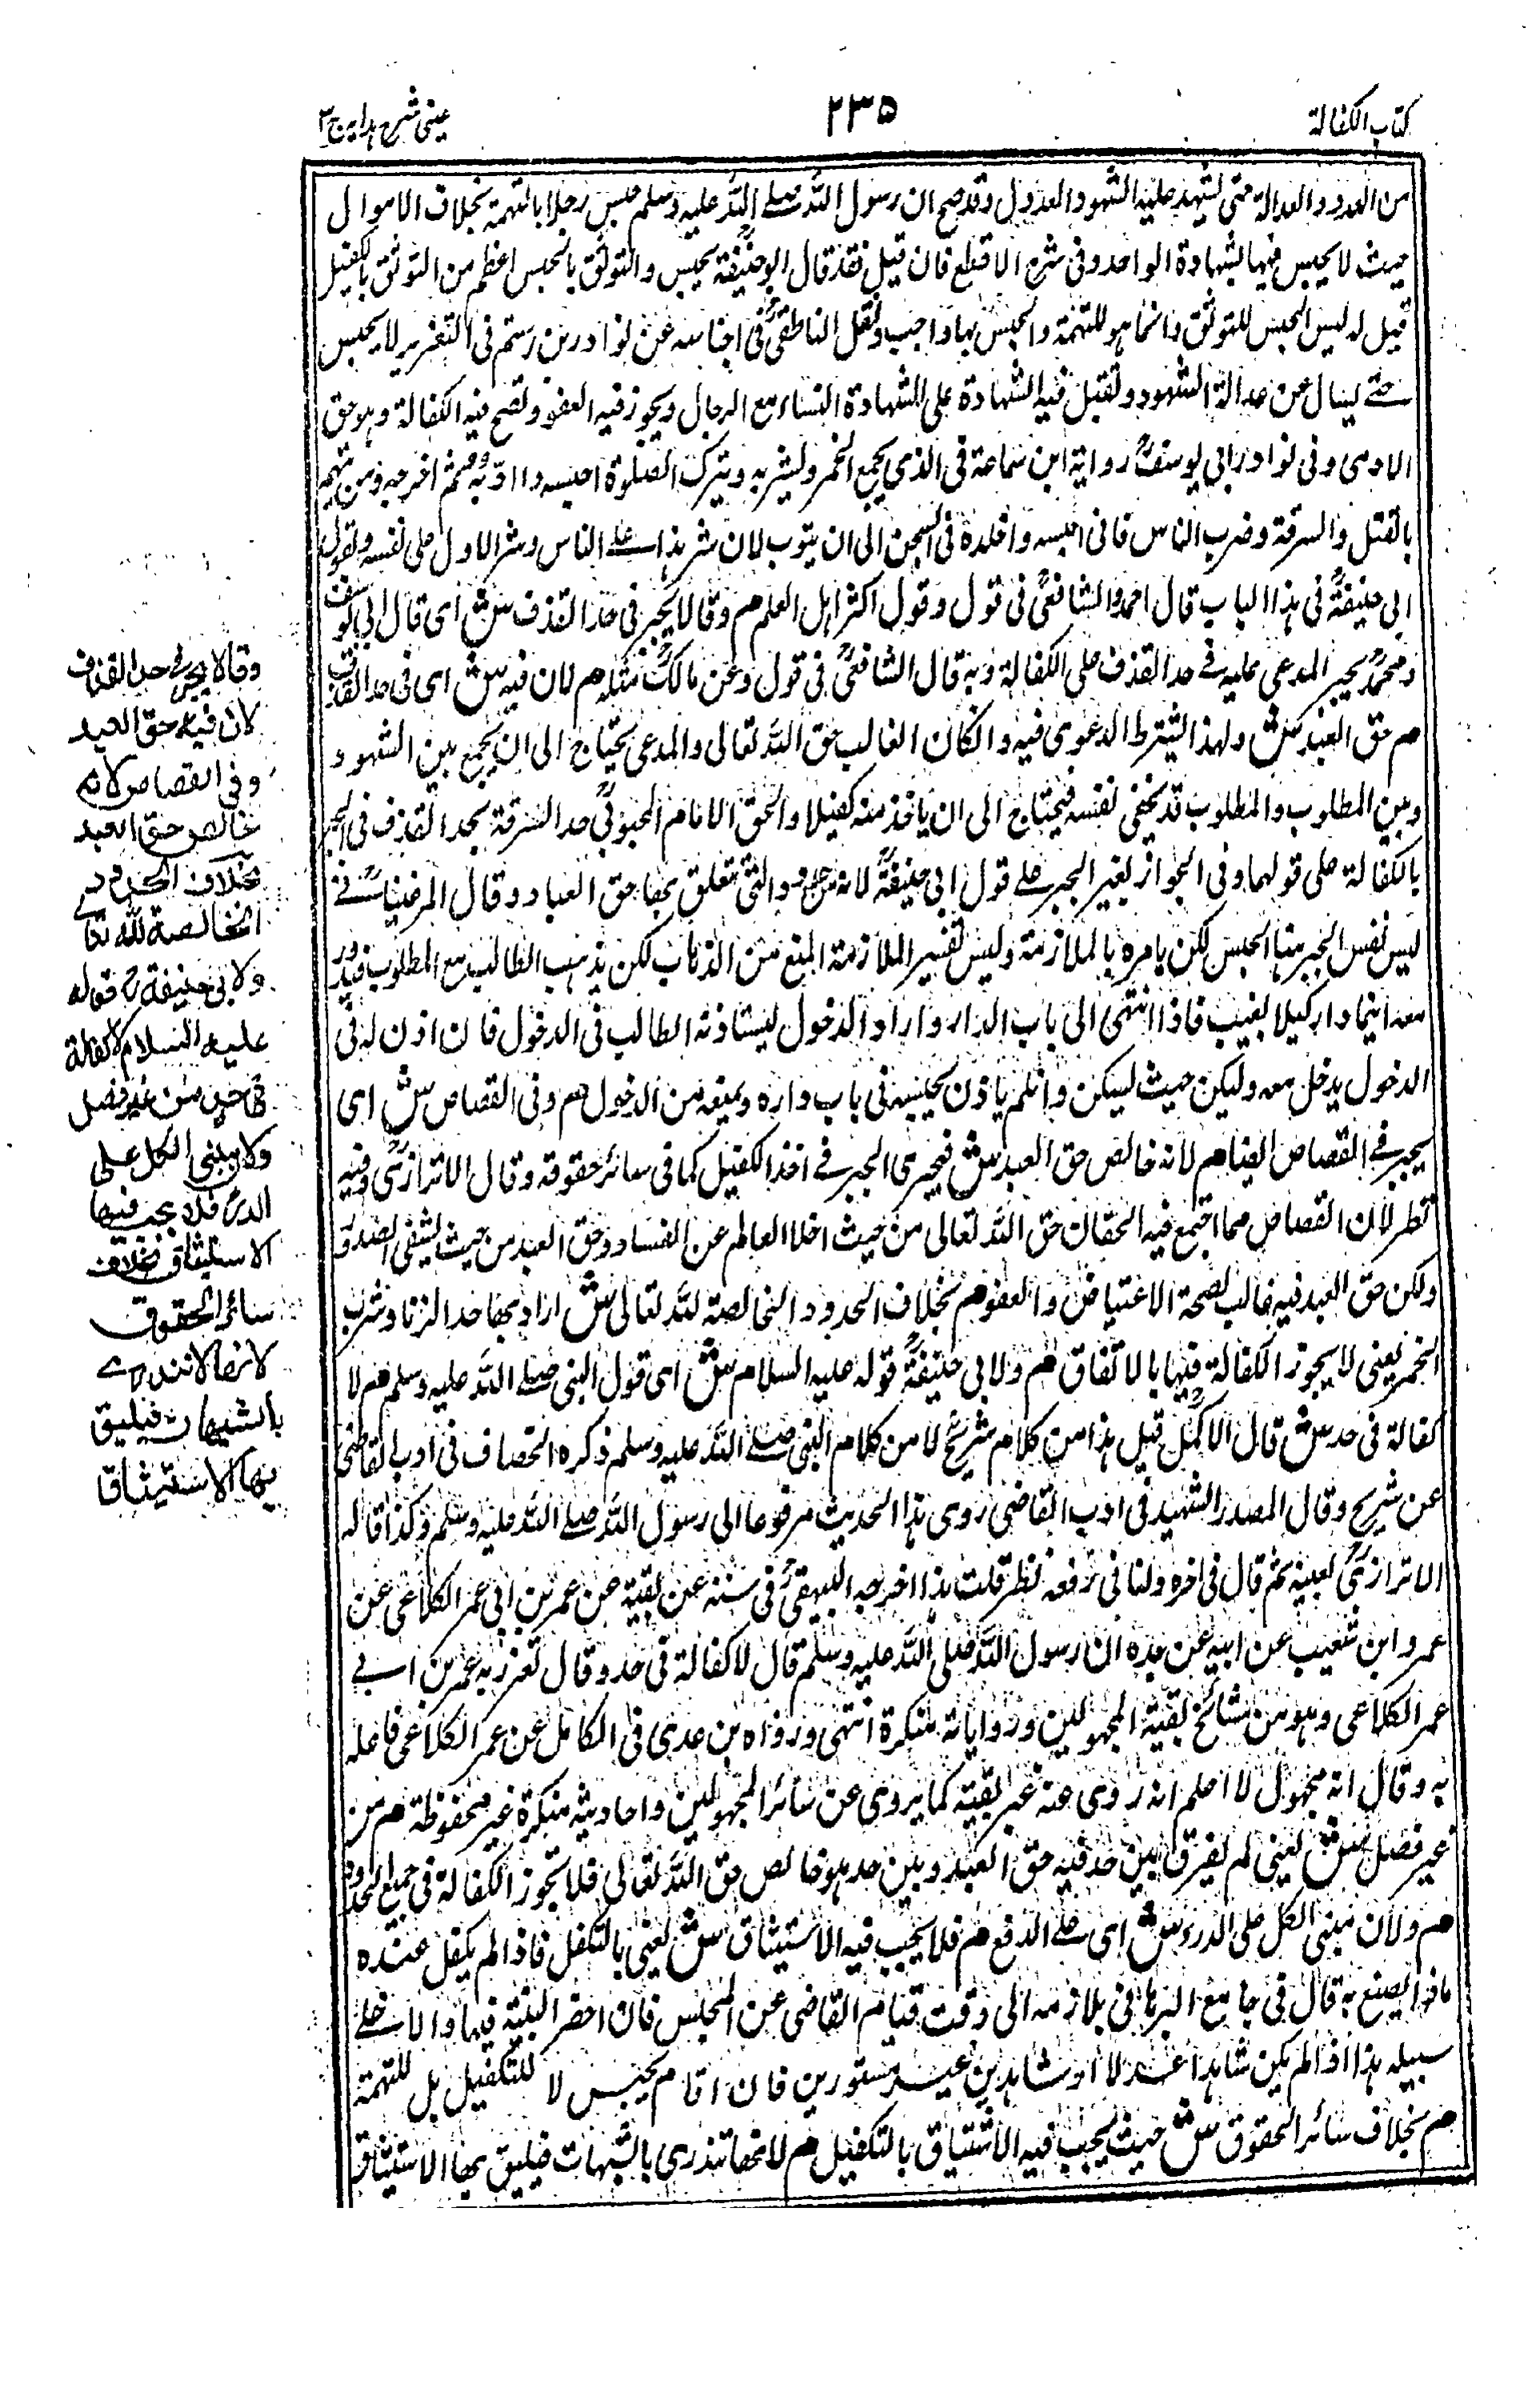 كتاب الكفالة
٢٣٥
عينى شرح هدايه ج ٣
من العدد والعدالة متى يشهد عليه الشهود العدول وقد صح ان رسول الله صلے الله عليه وسلم حبس رجلا بالتهمة بخلاف الاموال
حيث لا يحبس فيها بشهادة الواحد وفى شرح الاقطع فان قيل فقد قال ابو حنيفة يحبس والتوثق بالحبس اعظم من التوثق بالكفيل
قيل له ليس الحبس للتوثق وانما هو للتهمة والحبس بها واجب ونقل الناطفى فى اجناسه عن نوادر بن رستم فى التعزير لا يحبس
حتے يسال عن عدالة الشهود وتقبل فيه الشهادة على الشهادة النساء مع الرجال ويجوز فيه العفو وتصح فيه الكفالة وهو حق
الادمى وفى نوادر ابى يوسف رواية ابن سماعة فى الذى يجمع الخمر ويشربه ويترك الصلوة احبسه واادبه ثم اخرجه ومن يتهم
بالقتل والسرقة وضرب الناس فانى احبسه واخلده فى السجن الى ان يتوب لان شر هذا علے الناس وشر الاول على نفسه وبقول
ابى حنيفة فى هذا الباب قال احمد والشافعى فى قول وقول اكثر اهل العلم هم وقالا يجبر فى حد القذف ش اى قال ابى يوسف
ومحمد يجبر المدعى عليه فے حد القذف على الكفالة وبه قال الشافعى فى قول وعن مالك مثله هم لان فيه ش اى فى حد القذف
هم حق العبد ش ولهذا اشترط الدعوى فيه وانكان الغالب حق الله تعالى والمدعى يحتاج الى ان يجمع بين الشهود
وبين المطلوب والمطلوب قد يخفى نفسه فيحتاج الى ان ياخذ منه كفيلا والحق الامام المحبوبى حد السرقة بحد القذف فى الجبر
بالكفالة على قولهما وفى الجواز بغير الجبر علے قول ابى حنيفة لانه من والتى تتعلق بها حق العباد وقال المرغينانى فے
ليس تفسير الجبر هنا الحبس لكن يامره بالملازمة وليس تفسير الملازمة المنع من الذهاب لكن يذهب الطالب مع المطلوب فيدور
معه اينما دار كيلا يغيب فاذا انتهى الى باب الدار واراد الدخول يستاذنه الطالب فى الدخول فان اذن له فى
الدخول يدخل معه وليكن حيث ليسكن وانلم ياذن يحبسه فى باب داره ويمنعه من الدخول هم وفى القصاص ش اى
يجبر فے القصاص ايضا هم لانه خالص حق العبد ش فيجرى الجبر فے اخذ الكفيل كما فى سائر حقوقه وقال الاترازى وفيه
نظر لان القصاص مما اجتمع فيه الحقان حق الله تعالى من حيث اخلا العالم عن الفساد وحق العبد من حيث يشفى الصدور
ولكن حق العبد فيه غالب لصحة الاعتياض والعفو هم بخلاف الحدود الخالصة لله تعالى ش اراد بها حد الزنا وشرب
الخمر يعنى لا يجوز الكفالة فيها بالاتفاق هم ولابى حنيفة قوله عليه السلام ش اى قول النبى صلے الله عليه وسلم هم لا
كفالة فى حد ش قال الاكمل قيل هذا من كلام شريح لا من كلام النبى صلے الله عليه وسلم ذكره الخصاف فى ادب القاضى
عن شريح وقال الصدر الشهيد فى ادب القاضى روى هذا الحديث مرفوعا الى رسول الله صلے الله عليه وسلم وكذا قاله
الاترازى بعينه ثم قال فى اخره ولنا فى رفعه نظر قلت هذا اخرجه البيهقى فى سننه عن بقية عن عمر بن ابى عمر الكلاعى عن
عمرو ابن شعيب عن ابيه عن جده ان رسول الله صلى الله عليه وسلم قال لا كفالة فى حد وقال تفرد به عمر بن ابے
عمر الكلاعى وهو من مشائخ بقية المجهولين ورواياته منكرة انتهى ورواه بن عدى فى الكامل عن عمر الكلاعى فاعله
به وقال انه مجهول لا اعلم انه روى عنه غير بقية كما يروى عن سائر المجهولين واحاديثه منكرة غير محفوظة هم من
غير فصل ش يعنى لم يفرق بين حد فيه حق العبد وبين حد هو خالص حق الله تعالى فلا تجوز الكفالة فى جميع الحدود
هم ولان مبنى الكل على الدرء ش اى علے الدفع هم فلا يجب فيه الاستيثاق ش يعنى بالتكفل فاذا لم يكفل عنده
ماذا يصنع به قال فى جامع البرهانى يلازمه الى وقت قيام القاضى عن المجلس فان احضر البينة فيها والا خلے
سبيله هذا اذا لم يكن شاهدا عدلا او شاهدين غير مستورين فان اقام يحبس لا للتكفيل بل للتهمة
هم بخلاف سائر الحقوق ش حيث يجب فيه الاستيثاق بالتكفيل هم لانها تندرى بالشبهات فيليق بها الاستيثاق
وقالا يجبر فے حد القذف
لان فيه حق العبد
وفى القصاص لانه
خالص حق العبد
بخلاف الحدود
الخالصة لله تعا
ولابى حنيفة رح قوله
عليه السلام لا كفالة
فى حد من غير فصل
ولان مبنى الكل على
الدرء فلا يجب فيها
الاستيثاق بخلاف
سائر الحقوق
لانها لا تندرے
بالشبهات فيليق
بها الاستيثاق